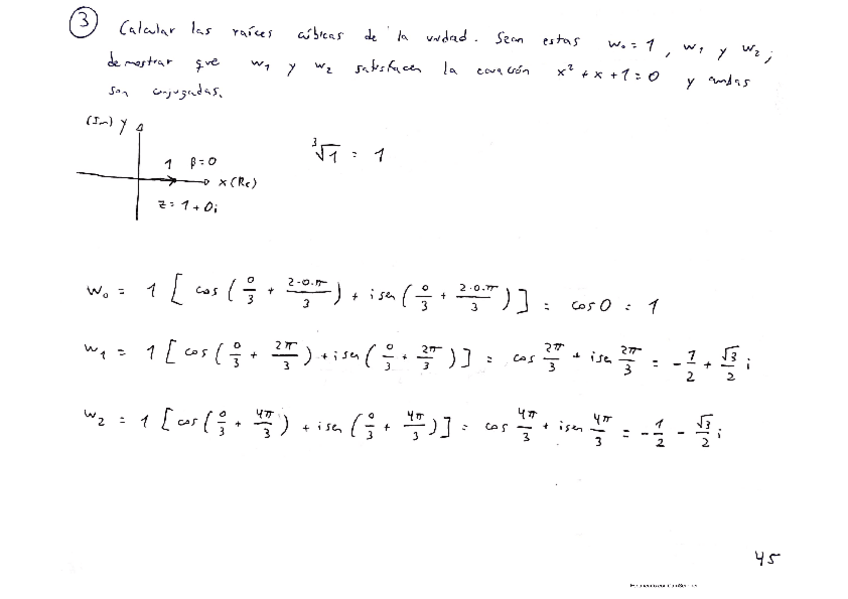 3 Calcular las raíces cúbicas de la unidad. Sean estas w₀ = 1, w₁ y w₂;
demostrar que w₁ y w₂ satisfacen la ecuación x² + x + 1 = 0 y ambas
son conjugadas.
(Im) y
∛1 = 1
1 β=0
x (Re)
z = 1 + 0i
w₀ = 1 [ cos (0/3 + 2·0·π/3) + i sen (0/3 + 2·0·π/3) ] = cos 0 = 1
w₁ = 1 [ cos (0/3 + 2π/3) + i sen (0/3 + 2π/3) ] = cos 2π/3 + i sen 2π/3 = -1/2 + √3/2 i
w₂ = 1 [ cos (0/3 + 4π/3) + i sen (0/3 + 4π/3) ] = cos 4π/3 + i sen 4π/3 = -1/2 - √3/2 i
45